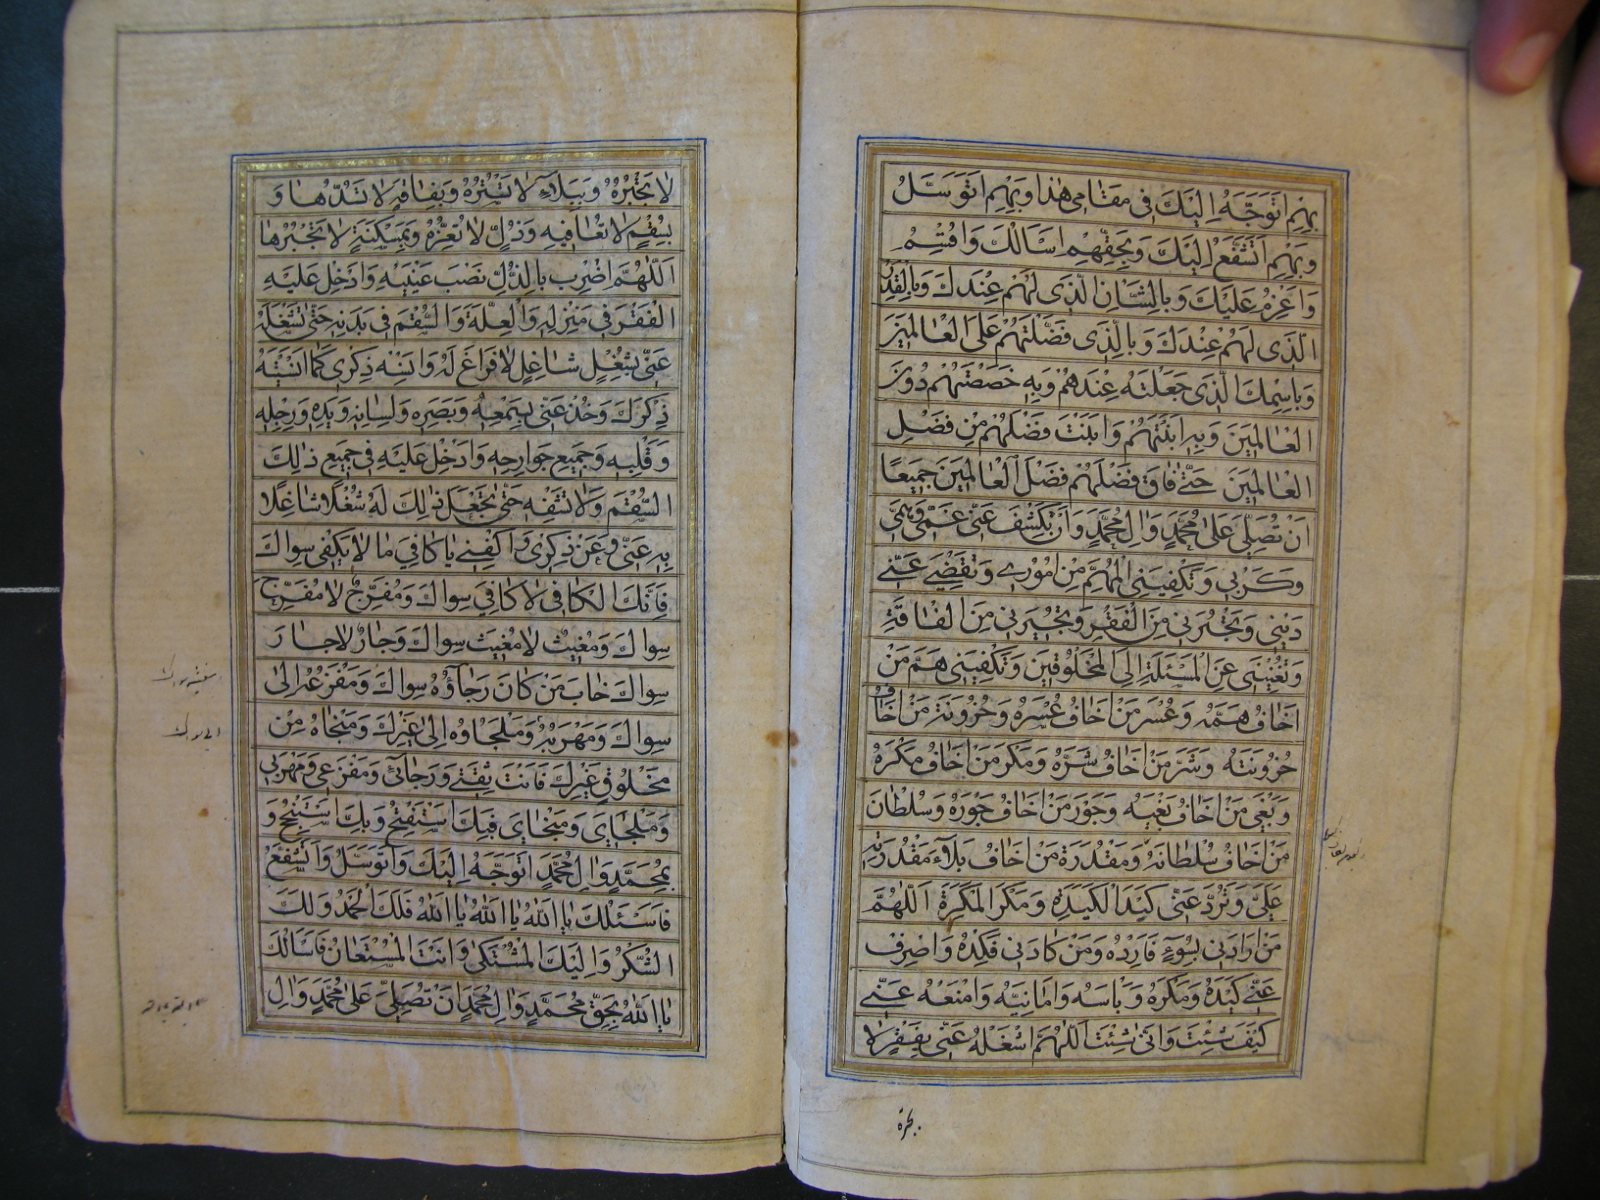 بِهِمْ اَتَوَجَّهُ اِلَيْكَ فى مَقامى هٰذا وَبِهِمْ اَتَوَسَّلُ
وَبِهِمْ اَتَشَفَّعُ اِلَيْكَ وَبِحَقِّهِمْ اَسْاَلُكَ وَاُقْسِمُ
وَاَعْزِمُ عَلَيْكَ وَبِالشَّأنِ الَّذى لَهُمْ عِنْدَكَ وَبِالْقَدْرِ
الَّذى لَهُمْ عِنْدَكَ وَبِالَّذى فَضَّلْتَهُمْ عَلَى الْعالَمينَ
وَبِاسْمِكَ الَّذى جَعَلْتَهُ عِنْدَهُمْ وَبِهِ خَصَصْتَهُمْ دُونَ
الْعالَمينَ وَبِهِ اَبَنْتَهُمْ وَاَبَنْتَ فَضْلَهُمْ مِنْ فَضْلِ
الْعالَمينَ حَتّى فاقَ فَضْلُهُمْ فَضْلَ الْعالَمينَ جَميعًا
اَنْ تُصَلِّىَ عَلى مُحَمَّدٍ وَالِ مُحَمَّدٍ وَاَنْ تَكْشِفَ عَنّى غَمّى وَهَمّى
وَكَرْبى وَتَكْفِيَنى الْمُهِمَّ مِنْ اُمُورى وَتَقْضِىَ عَنّى
دَيْنى وَتَجْبُرَنى مِنَ الْفَقْرِ وَتُجيرَنى مِنَ الْفاقَةِ
وَتُغْنِيَنى عَنِ الْمَسْئَلَةِ اِلَى الْمَخْلُوقينَ وَتَكْفِيَنى هَمَّ مَنْ
اَخافُ هَمَّهُ وَعُسْرَ مَنْ اَخافُ عُسْرَهُ وَحُزُونَةَ مَنْ اَخافُ
حُزُونَتَهُ وَشَرَّ مَنْ اَخافُ شَرَّهُ وَمَكْرَ مَنْ اَخافُ مَكْرَهُ
وَبَغْىَ مَنْ اَخافُ بَغْيَهُ وَجَوْرَ مَنْ اَخافُ جَوْرَهُ وَسُلْطانَ
مَنْ اَخافُ سُلْطانَهُ وَمَقْدُرَةَ مَنْ اَخافُ بَلاءَ مَقْدُرَتِهِ
عَلَىَّ وَتَرُدَّ عَنّى كَيْدَ الْكَيَدَةِ وَمَكْرَ الْمَكَرَةِ اَللّهُمَّ
مَنْ اَرادَنى بِسُوءٍ فَاَرِدْهُ وَمَنْ كادَنى فَكِدْهُ وَاصْرِفْ
عَنّى كَيْدَهُ وَمَكْرَهُ وَبَأسَهُ وَاَمانِيَّهُ وَامْنَعْهُ عَنّى
كَيْفَ شِئْتَ وَاَنّى شِئْتَ اَللّهُمَّ اشْغَلْهُ عَنّى بِفَقْرٍ لا
تجبره
لا تَجْبُرُهُ وَبِبَلاءٍ لا تَسْتُرُهُ وَبِفاقَةٍ لا تَسُدُّها وَ
بِسُقْمٍ لا تُعافيهِ وَذُلٍّ لا تُعِزُّهُ وَبِمَسْكَنَةٍ لا تَجْبُرُها
اَللّهُمَّ اضْرِبْ بِالذُّلِّ نَصْبَ عَيْنَيْهِ وَاَدْخِلْ عَلَيْهِ
الْفَقْرَ فى مَنْزِلِهِ وَالْعِلَّةَ وَالسُّقْمَ فى بَدَنِهِ حَتّى تَشْغَلَهُ
عَنّى بِشُغْلٍ شاغِلٍ لا فَراغَ لَهُ وَاَنْسِهِ ذِكْرى كَما اَنْسَيْتَهُ
ذِكْرَكَ وَخُذْ عَنّى بِسَمْعِهِ وَبَصَرِهِ وَلِسانِهِ وَيَدِهِ وَرِجْلِهِ
وَقَلْبِهِ وَجَميعِ جَوارِحِهِ وَاَدْخِلْ عَلَيْهِ فى جَميعِ ذلِكَ
السُّقْمَ وَلا تَشْفِهِ حَتّى تَجْعَلَ ذلِكَ لَهُ شُغْلًا شاغِلًا
بِهِ عَنّى وَعَنْ ذِكْرى وَاكْفِنى يا كافِىَ ما لا يَكْفى سِواكَ
فَاِنَّكَ الْكافى لا كافِىَ سِواكَ وَمُفَرِّجٌ لا مُفَرِّجَ
سِواكَ وَمُغيثٌ لا مُغيثَ سِواكَ وَجارٌ لا جارَ
سِواكَ خابَ مَنْ كانَ رَجاؤُهُ سِواكَ وَمَفْزَعُهُ اِلى
سِواكَ وَمَهْرَبُهُ وَمَلْجَاؤُهُ اِلى غَيْرِكَ وَمَنْجاهُ مِنْ
مَخْلُوقٍ غَيْرِكَ فَاَنْتَ ثِقَتى وَرَجائى وَمَفْزَعى وَمَهْرَبى
وَمَلْجَاىَ وَمَنْجاىَ فَبِكَ اَسْتَفْتِحُ وَبِكَ اَسْتَنْجِحُ وَ
بِمُحَمَّدٍ وَالِ مُحَمَّدٍ اَتَوَجَّهُ اِلَيْكَ وَاَتَوَسَّلُ وَاَتَشَفَّعُ
فَاَسْئَلُكَ يا اَللهُ يا اَللهُ يا اَللهُ فَلَكَ الْحَمْدُ وَلَكَ
الشُّكْرُ وَاِلَيْكَ الْمُشْتَكى وَاَنْتَ الْمُسْتَعانُ فَاَسْاَلُكَ
يا اَللهُ بِحَقِّ مُحَمَّدٍ وَالِ مُحَمَّدٍ اَنْ تُصَلِّىَ عَلى مُحَمَّدٍ وَالِ